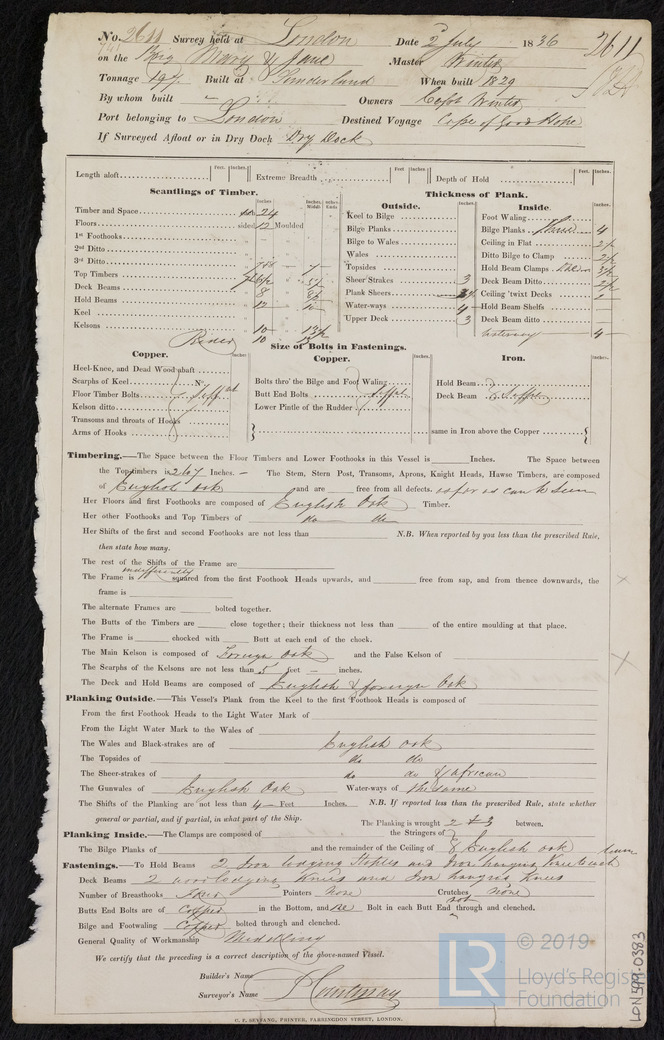 No. 2611 Survey held at London Date 2 July 1836 2611
on the Brig Mary & Jane Master Winter
Tonnage 197 Built at Sunderland When built 1829
By whom built - Owners Capt Winter
Port belonging to London Destined Voyage Cape of Good Hope
If Surveyed Afloat or in Dry Dock Dry Dock
Length aloft Feet. Inches. Extreme Breadth Feet Inches. Depth of Hold Feet. Inches.
Scantlings of Timber.
Inches. Inches. Middle Inches. Ends
Timber and Space 24
Floors sided 12 Moulded
1st Foothooks
2nd Ditto
3rd Ditto
Top Timbers
Deck Beams
Hold Beams
Keel
Kelsons
Rider 10
Thickness of Plank.
Outside. Inches.
Keel to Bilge
Bilge Planks
Bilge to Wales
Wales
Topsides
Sheer Strakes 3
Plank Sheers
Water-ways 4
Upper Deck 3
Inside. Inches.
Foot Waling
Bilge Planks 4
Ceiling in Flat
Ditto Bilge to Clamp
Hold Beam Clamps
Deck Beam Ditto
Ceiling 'twixt Decks
Hold Beam Shelfs
Deck Beam ditto
4
Size of Bolts in Fastenings.
Copper. Inches.
Heel-Knee, and Dead Wood abaft
Scarphs of Keel No
Floor Timber Bolts
Kelson ditto
Transoms and throats of Hooks
Arms of Hooks
Copper. Inches.
Bolts thro' the Bilge and Foot Waling
Butt End Bolts
Lower Pintle of the Rudder
Iron. Inches.
Hold Beam
Deck Beam
same in Iron above the Copper
Timbering.—The Space between the Floor Timbers and Lower Foothooks in this Vessel is Inches. The Space between
the Top-timbers is 2 to 7 Inches. — The Stem, Stern Post, Transoms, Aprons, Knight Heads, Hawse Timbers, are composed
of English oak and are free from all defects. as far as can be seen
Her Floors and first Foothooks are composed of English Oak Timber.
Her other Foothooks and Top Timbers of do do
Her Shifts of the first and second Foothooks are not less than N.B. When reported by you less than the prescribed Rule,
then state how many.
The rest of the Shifts of the Frame are
The Frame is indifferently squared from the first Foothook Heads upwards, and free from sap, and from thence downwards, the
frame is
The alternate Frames are bolted together.
The Butts of the Timbers are close together; their thickness not less than of the entire moulding at that place.
The Frame is chocked with Butt at each end of the chock.
The Main Kelson is composed of Foreign Oak and the False Kelson of
The Scarphs of the Kelsons are not less than 5 feet — inches.
The Deck and Hold Beams are composed of English & foreign Oak
Planking Outside.—This Vessel's Plank from the Keel to the first Foothook Heads is composed of
From the first Foothook Heads to the Light Water Mark of
From the Light Water Mark to the Wales of
The Wales and Black-strakes are of English oak
The Topsides of do do
The Sheer-strakes of do do & african
The Gunwales of English Oak Water-ways of the same
The Shifts of the Planking are not less than 4 Feet Inches. N.B. If reported less than the prescribed Rule, state whether
general or partial, and if partial, in what part of the Ship. The Planking is wrought 2 & 3 between.
Planking Inside.—The Clamps are composed of the Stringers of
The Bilge Planks of and the remainder of the Ceiling of English oak
Fastenings.—To Hold Beams 2 Iron lodging Staples and Iron hanging Knee to each beam
Deck Beams 2 wood lodging Knees and Iron hanging Knees
Number of Breasthooks Four Pointers None Crutches none
Butts End Bolts are of Copper in the Bottom, and Bolt in each Butt End not through and clenched.
Bilge and Footwaling Copper bolted through and clenched.
General Quality of Workmanship Middling
We certify that the preceding is a correct description of the above-named Vessel.
Builder's Name
Surveyor's Name Courtenay
C. F. SEYFANG, PRINTER, FARRINGDON STREET, LONDON.
LR © 2019
Lloyd's Register
Foundation
LON599-0383